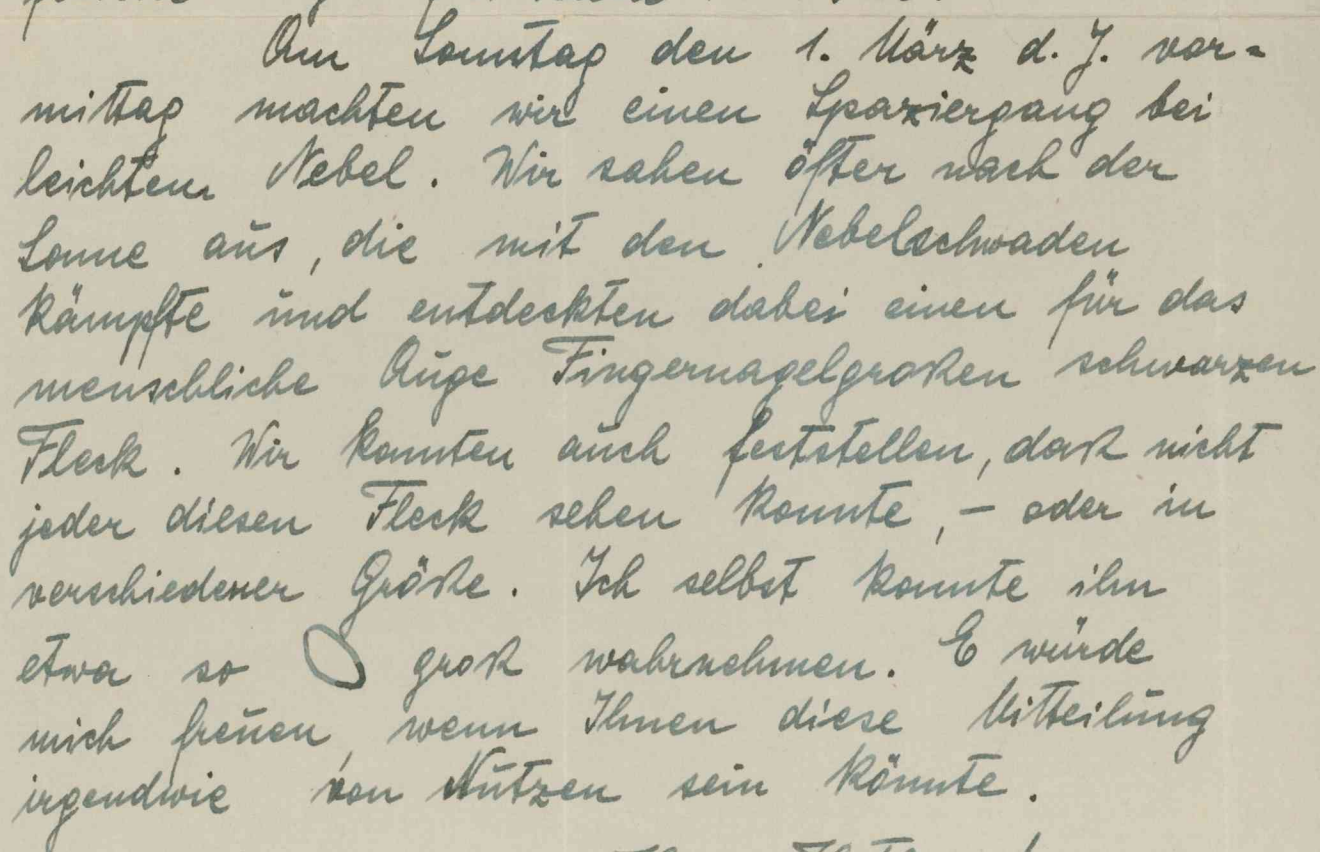 Am Sonntag den 1. März d. J. vor=
mittag machten wir einen Spaziergang bei
leichtem Nebel. Wir sahen öfter nach der
Sonne aus, die mit den Nebelschwaden
kämpfte und entdeckten dabei einen für das
menschliche Auge Fingernagelgroßen schwarzen
Fleck. Wir konnten auch feststellen, daß nicht
jeder diesen Fleck sehen konnte, – oder in
verschiedener Größe. Ich selbst konnte ihn
etwa so groß wahrnehmen. E würde
mich freuen, wenn Ihnen diese Mitteilung
irgendwie von Nutzen sein könnte.